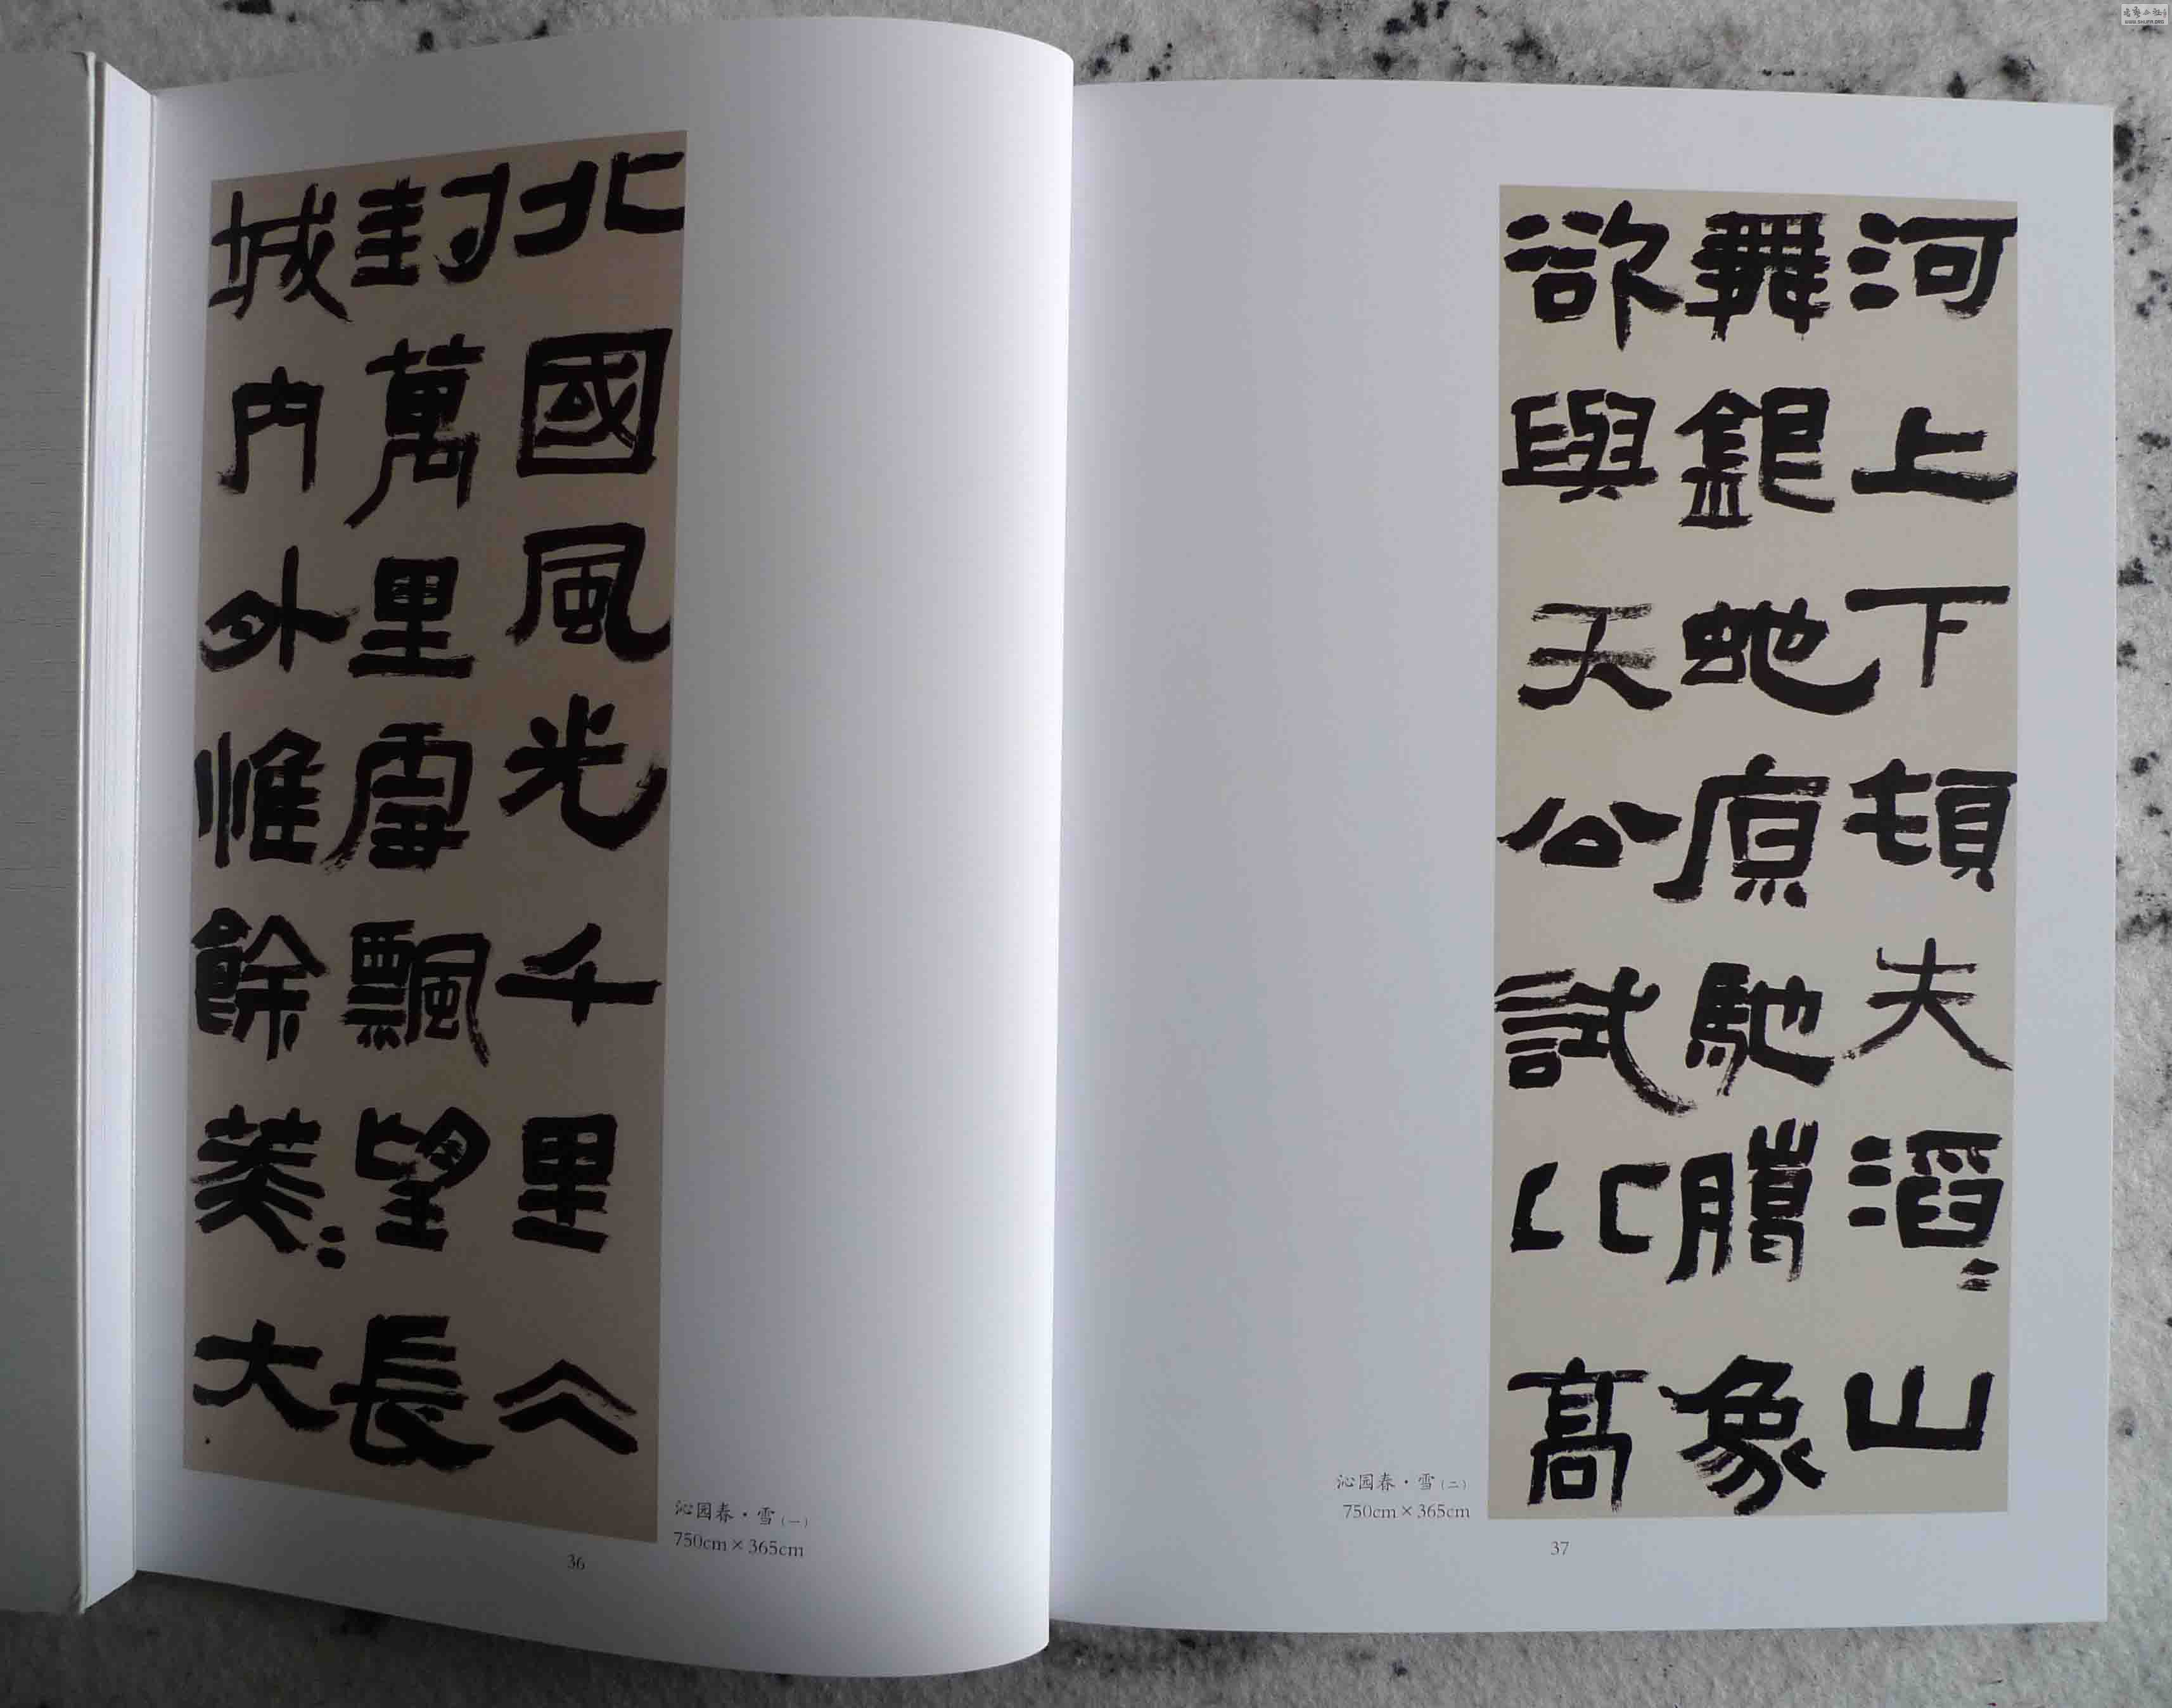 北國風光千里仌
封萬里雪飄望長
城內外惟餘莽〻大
沁园春·雪（一）
750cm×365cm
36
河上下頓失滔〻山
舞銀蛇原馳臘象
欲與天公試比高
沁园春·雪（二）
750cm×365cm
37